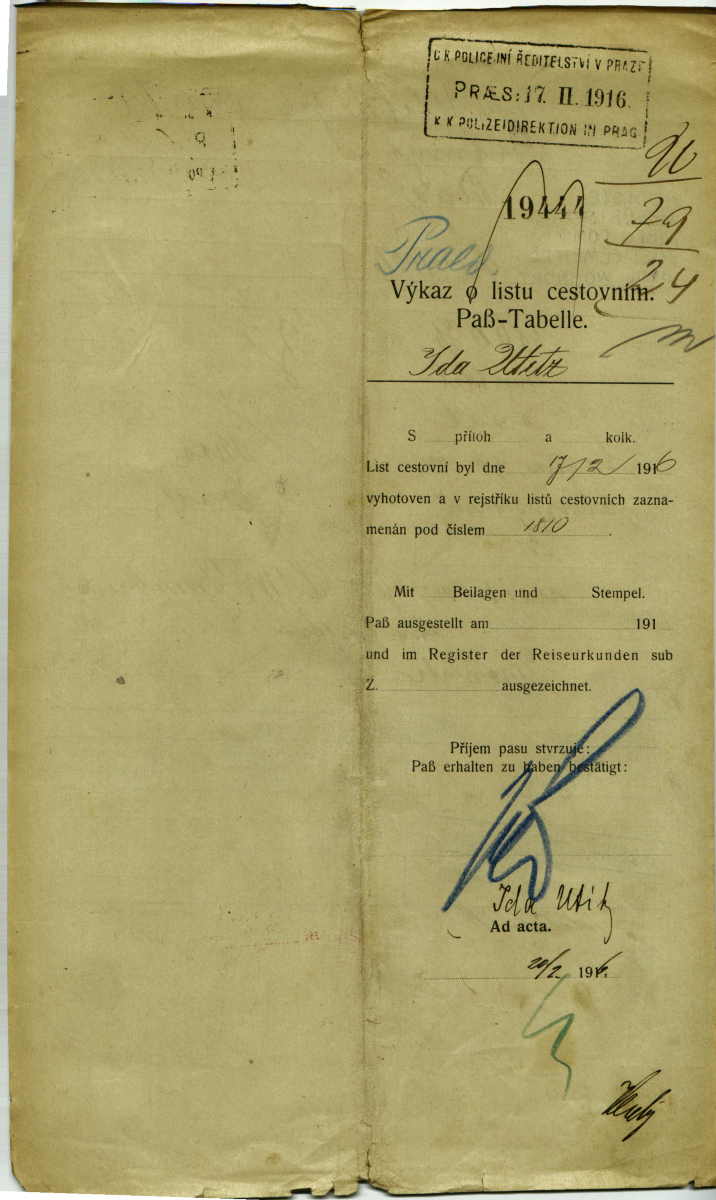 C K POLICEJNÍ ŘEDITELSTVÍ V PRAZE
PRÆS: 17. II. 1916.
K K POLIZEIDIREKTION IN PRAG
U
19444
79
24
Výkaz o listu cestovním.
Paß-Tabelle.
Ida Utitz
S přitoh a kolk.
List cestovní byl dne 17/2 1916
vyhotoven a v rejstříku listů cestovních zazna-
menán pod číslem 1810.
Mit Beilagen und Stempel.
Paß ausgestellt am 191
und im Register der Reiseurkunden sub
Z. ausgezeichnet.
Příjem pasu stvrzuje:
Paß erhalten zu haben bestätigt:
Ida Utitz
Ad acta.
20/2 1916.